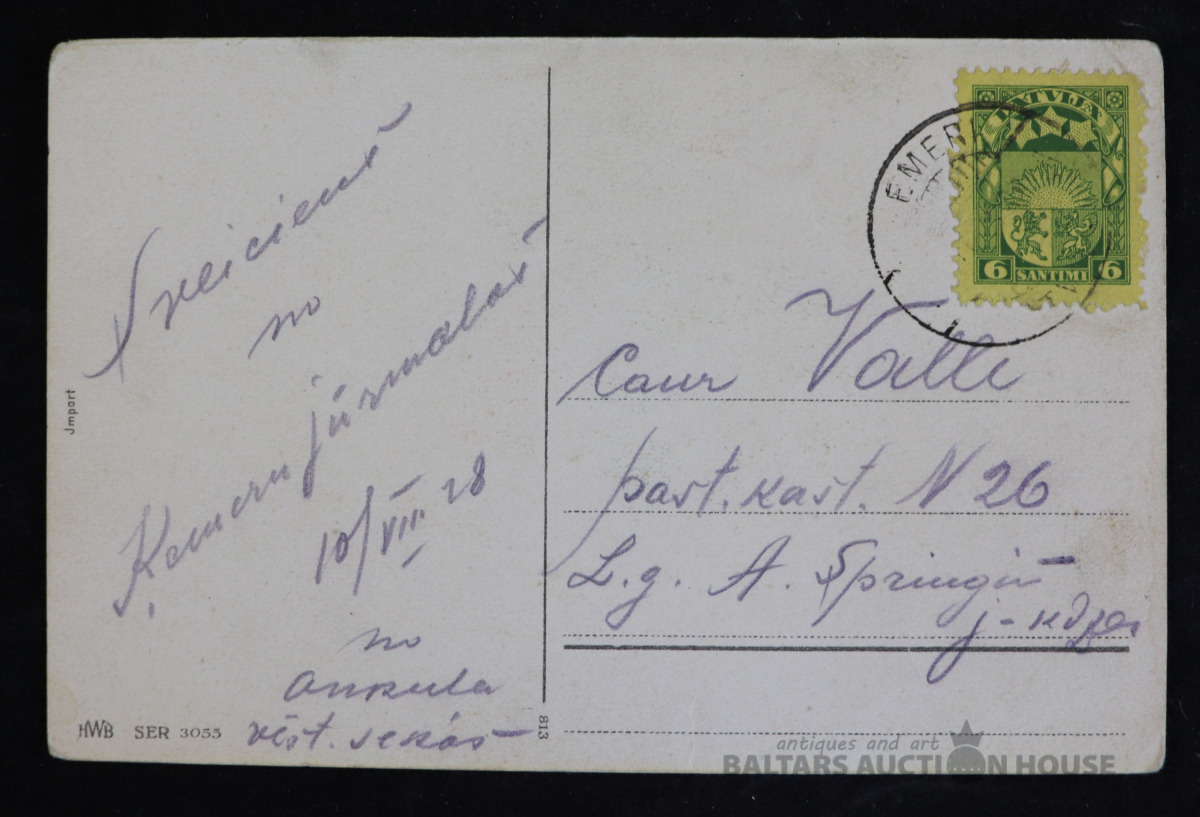 Sveiciens
no
Ķemeru jūrmalas
10/VIII 28
no
vēst. sekās
Jmport
HWB SER 3055
813
LATVIJEX
6 SANTIMI 6
EMER
Caur Valli
past. kast. N 26
L.g. A. Spriņģi
j-kdze
antiques and art
BALTARS AUCTION HOUSE